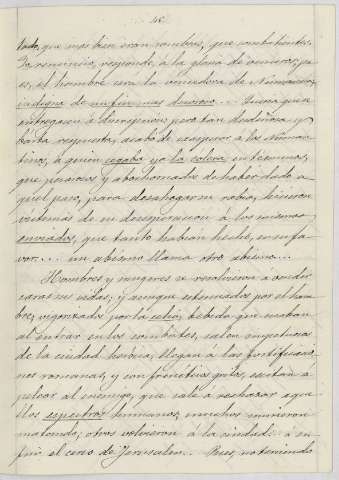 16
tados, que mas bien eran sombras, que combatientes.
La renuncia, responde, á la gloria de venceros, pa
es, el hombre será la vencedora de Numancia,
indigna de un fin mas decoroso... Quiero que se
entreguen á discrecion; pero tan desdeñosa y
corta respuesta, acabó de exasperar á los Numan
tinos, á quien cegaba ya la colera en terminos,
que pesarosos y abochornados de haber dado a
quel paso, para desahogar su rabia, hicieron
victimas de su desesperacion á los mismos
enviados, que tanto habian hecho, en su fa
vor.... un abismo llama otro abismo...
Hombres y mugeres se resolvieron á vender
caras sus vidas, y aunque estenuados por el ham
bre, vigorizados por la celia, bebida que usaban
al entrar en los combates, salen impetuosos
de la ciudad heroica, llegan á las fortificacio
nes romanas, y con freneticos gritos, escitan á
pelear al enemigo, que sale á rechazar aque
llos espectros humanos; muchos murieron
matando; otros volvieron á la ciudad: á su
frir el cerco de Jerusalen... Pues, no teniendo